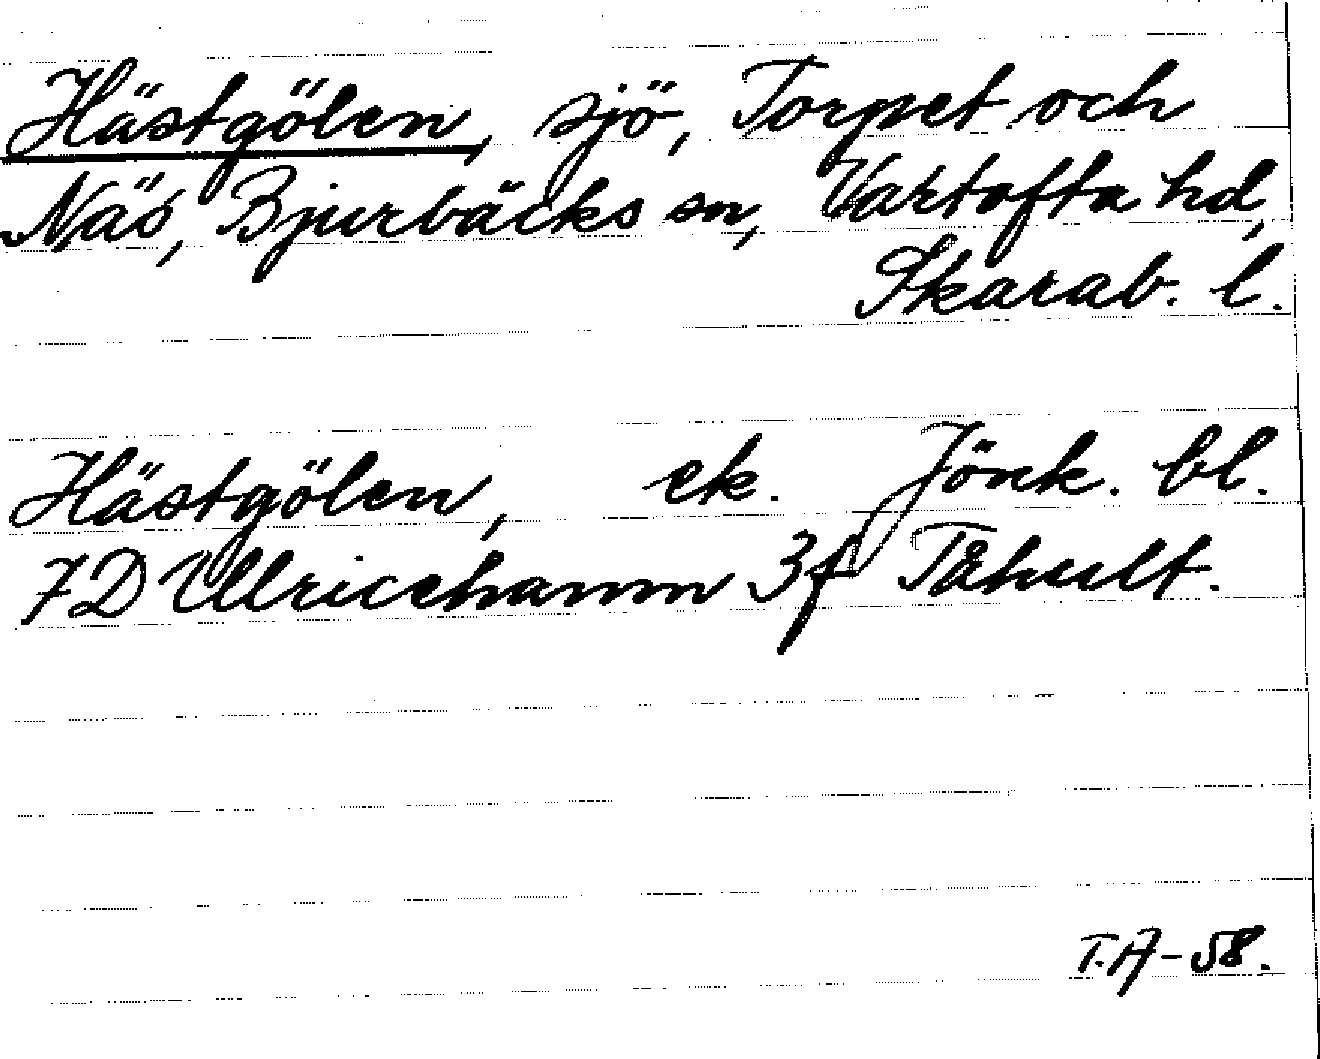 Hästgölen, sjö, Torpet och
Näs, Bjurbäcks sn, Vartofta hd,
Skarab. l.
Hästgölen, ek. Jönk. bl.
7D Ulricehamn 3f Tåhult.
T.A-58.